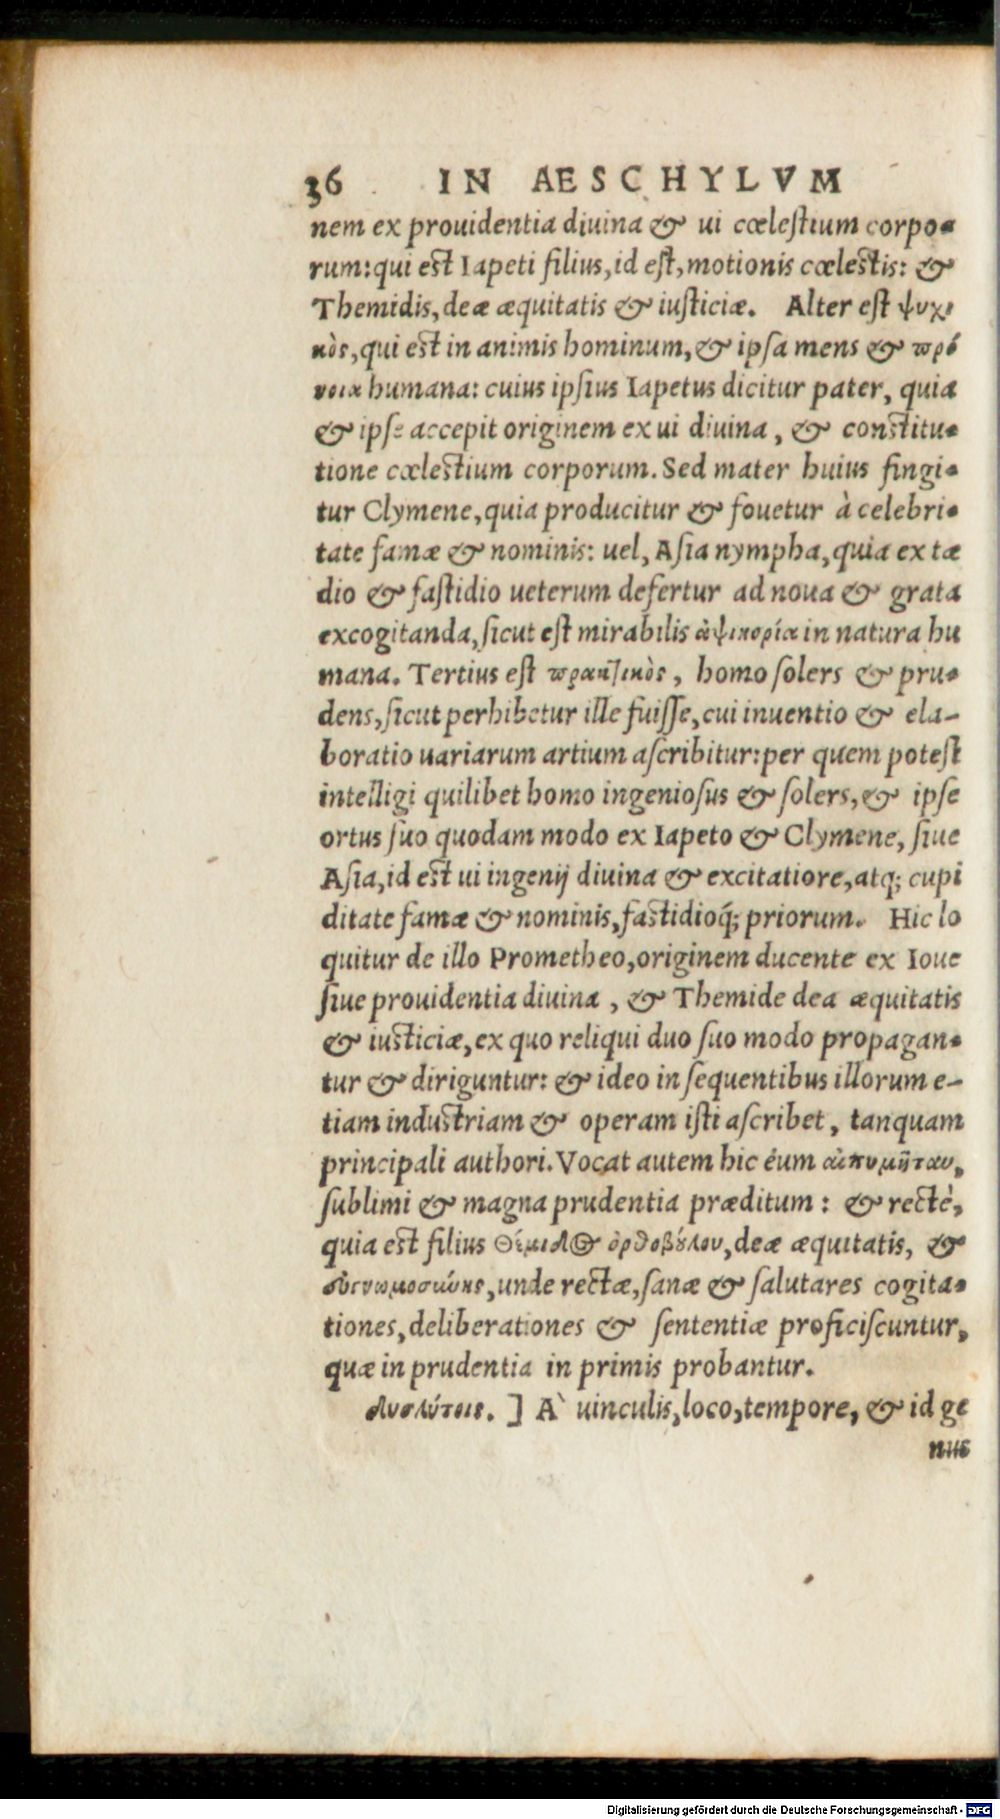 36 IN AESCHYLVM
nem ex prouidentia diuina & ui cœlestium corpo-
rum: qui est Iapeti filius, id est, motionis cœlestis: &
Themidis, deæ æquitatis & iusticiæ. Alter est ψυχι
κὸς, qui est in animis hominum, & ipsa mens & πρό
νοια humana: cuius ipsius Iapetus dicitur pater, quia
& ipse accepit originem ex ui diuina, & constitu-
tione cœlestium corporum. Sed mater huius fingi-
tur Clymene, quia producitur & fouetur à celebri-
tate famæ & nominis: uel, Asia nympha, quia ex tæ
dio & fastidio ueterum defertur ad noua & grata
excogitanda, sicut est mirabilis ἁψικορία in natura hu
mana. Tertius est πρακτικὸς, homo solers & pru-
dens, sicut perhibetur ille fuisse, cui inuentio & ela-
boratio uariarum artium ascribitur: per quem potest
intelligi quilibet homo ingeniosus & solers, & ipse
ortus suo quodam modo ex Iapeto & Clymene, siue
Asia, id est ui ingenij diuina & excitatiore, atq; cupi
ditate famæ & nominis, fastidioq́; priorum. Hic lo
quitur de illo Prometheo, originem ducente ex Ioue
siue prouidentia diuina, & Themide dea æquitatis
& iusticiæ, ex quo reliqui duo suo modo propagan-
tur & diriguntur: & ideo in sequentibus illorum e-
tiam industriam & operam isti ascribet, tanquam
principali authori. Vocat autem hic éum αἰπυμῆταν,
sublimi & magna prudentia præditum: & rectè,
quia est filius Θέμιδος ὀρθοβούλου, deæ æquitatis, &
unde rectæ, sanæ & salutares cogita-
tiones, deliberationes & sententiæ proficiscuntur,
quæ in prudentia in primis probantur.
δυσλύτοις. ] A` uinculis, loco, tempore, & id ge
nus
Digitalisierung gefördert durch die Deutsche Forschungsgemeinschaft - DFG